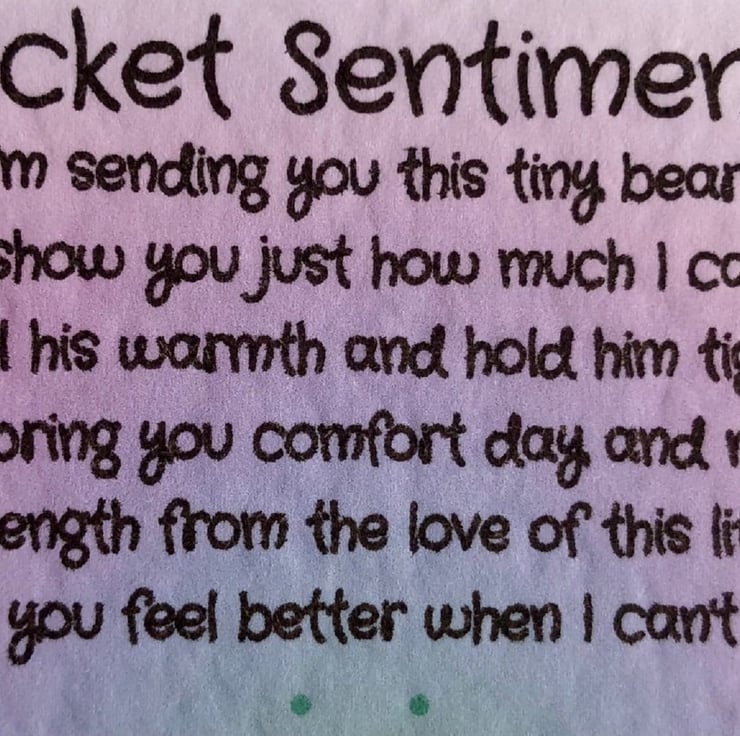 cket Sentimen
m sending you this tiny bear
show you just how much I ca
l his warmth and hold him tig
bring you comfort day and n
ength from the love of this lit
you feel better when I can't